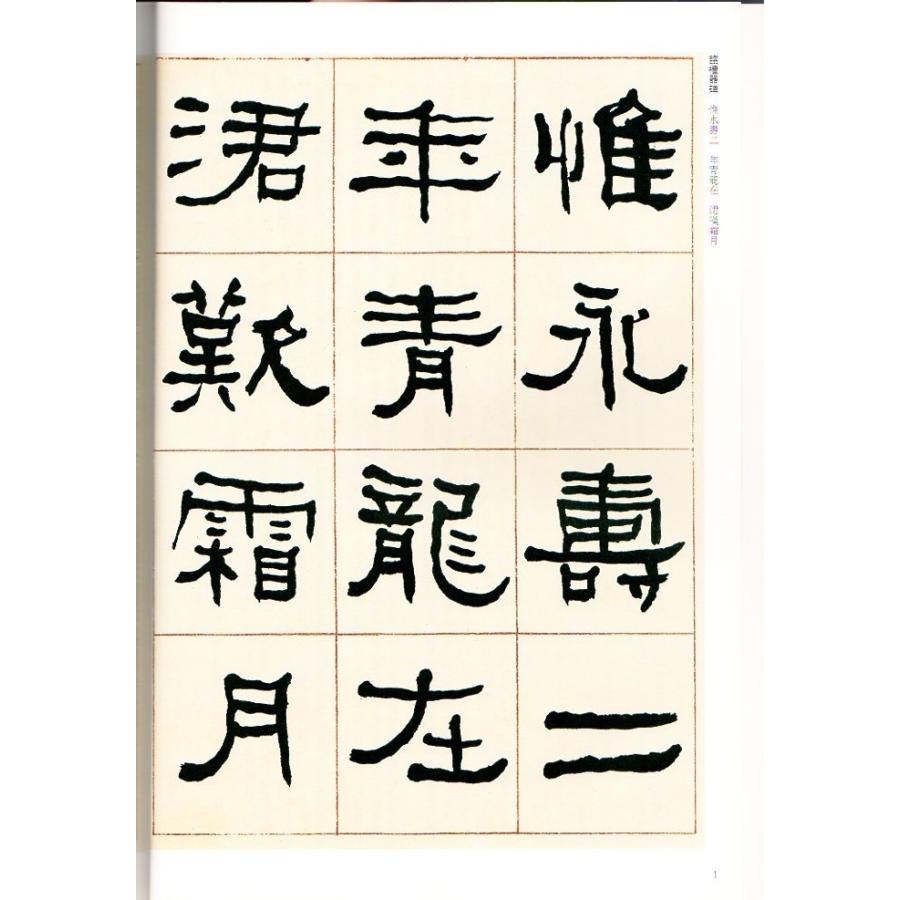 臨禮器碑 惟永壽二 年青龍在 涒歎霜月
惟永壽二
年青龍在
涒歎霜月
1